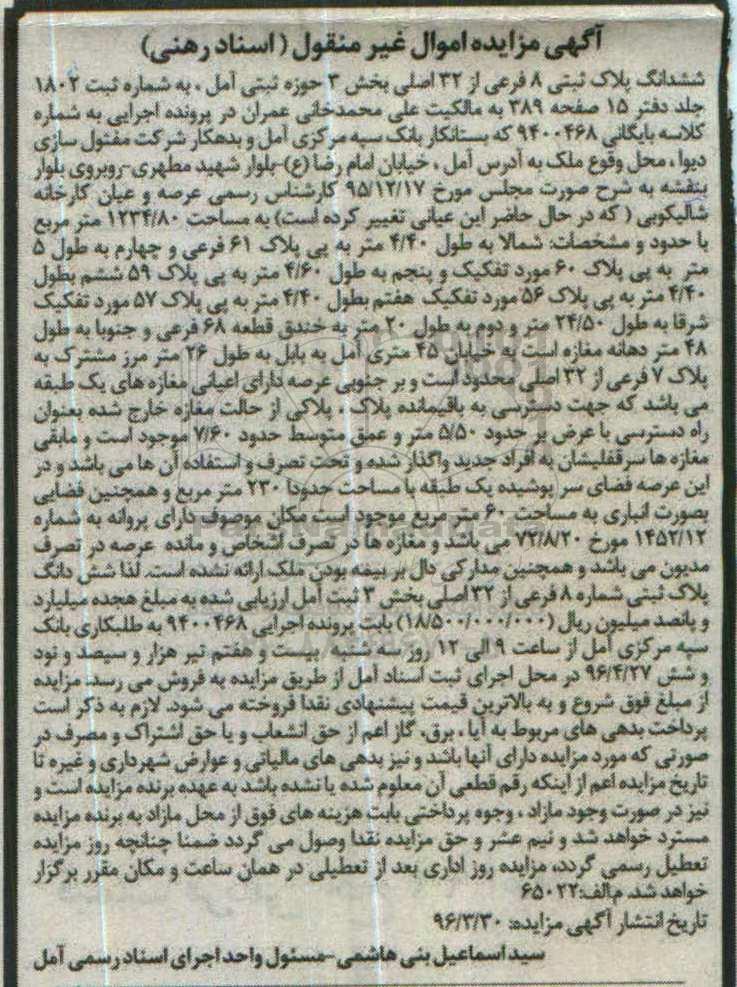 آگهی مزایده اموال غیر منقول (اسناد رهنی)
ششدانگ پلاک ثبتی ۸ فرعی از ۳۲ اصلی بخش ۳ حوزه ثبتی آمل ، به شماره ثبت ۱۸۰۲
جلد دفتر ۱۵ صفحه ۳۸۹ به مالکیت علی محمدخانی عمران در پرونده اجرایی به شماره
کلاسه بایگانی ۹۴۰۰۴۶۸ که بستانکار بانک سپه مرکزی آمل و بدهکار شرکت مفتول سازی
دیوا ، محل وقوع ملک به آدرس آمل ، خیابان امام رضا (ع)-بلوار شهید مطهری-روبروی بلوار
بنفشه به شرح صورت مجلس مورخ ۹۵/۱۲/۱۷ کارشناس رسمی عرصه و عیان کارخانه
شالیکوبی ( که در حال حاضر این عیانی تغییر کرده است) به مساحت ۱۲۳۴/۸۰ متر مربع
با حدود و مشخصات: شمالا به طول ۴/۴۰ متر به پی پلاک ۶۱ فرعی و چهارم به طول ۵
متر به پی پلاک ۶۰ مورد تفکیک و پنجم به طول ۴/۶۰ متر به پی پلاک ۵۹ ششم بطول
۴/۴۰ متر به پی پلاک ۵۶ مورد تفکیک هفتم بطول ۴/۴۰ متر به پی پلاک ۵۷ مورد تفکیک
شرقا به طول ۲۴/۵۰ متر و دوم به طول ۲۰ متر به خندق قطعه ۶۸ فرعی و جنوبا به طول
۴۸ متر دهانه مغازه است به خیابان ۴۵ متری آمل به بابل به طول ۲۶ متر مرز مشترک به
پلاک ۷ فرعی از ۳۲ اصلی محدود است و بر جنوبی عرصه دارای اعیانی مغازه های یک طبقه
می باشد که جهت دسترسی به باقیمانده پلاک ، پلاکی از حالت مغازه خارج شده بعنوان
راه دسترسی با عرض بر حدود ۵/۵۰ متر و عمق متوسط حدود ۷/۶۰ موجود است و مابقی
مغازه ها سرقفلیشان به افراد جدید واگذار شده و تحت تصرف و استفاده آن ها می باشد و در
این عرصه فضای سر پوشیده یک طبقه با مساحت حدودا ۲۳۰ متر مربع و همچنین فضایی
بصورت انباری به مساحت ۶۰ متر مربع موجود است مکان موصوف دارای پروانه به شماره
۱۴۵۲/۱۲ مورخ ۷۲/۸/۲۰ می باشد و مغازه ها در تصرف اشخاص و مانده عرصه در تصرف
مدیون می باشد و همچنین مدارکی دال بر بیمه بودن ملک ارائه نشده است. لذا شش دانگ
پلاک ثبتی شماره ۸ فرعی از ۳۲ اصلی بخش ۳ ثبت آمل ارزیابی شده به مبلغ هجده میلیارد
و پانصد میلیون ریال (۱۸/۵۰۰/۰۰۰/۰۰۰) بابت پرونده اجرایی ۹۴۰۰۴۶۸ به طلبکاری بانک
سپه مرکزی آمل از ساعت ۹ الی ۱۲ روز سه شنبه ، بیست و هفتم تیر هزار و سیصد و نود
و شش ۹۶/۴/۲۷ در محل اجرای ثبت اسناد آمل از طریق مزایده به فروش می رسد. مزایده
از مبلغ فوق شروع و به بالاترین قیمت پیشنهادی نقدا فروخته می شود. لازم به ذکر است
پرداخت بدهی های مربوط به آب ، برق، گاز اعم از حق انشعاب و یا حق اشتراک و مصرف در
صورتی که مورد مزایده دارای آنها باشد و نیز بدهی های مالیاتی و عوارض شهرداری و غیره تا
تاریخ مزایده اعم از اینکه رقم قطعی آن معلوم شده یا نشده باشد به عهده برنده مزایده است و
نیز در صورت وجود مازاد ، وجوه پرداختی بابت هزینه های فوق از محل مازاد به برنده مزایده
مسترد خواهد شد و نیم عشر و حق مزایده نقدا وصول می گردد ضمنا چنانچه روز مزایده
تعطیل رسمی گردد، مزایده روز اداری بعد از تعطیلی در همان ساعت و مکان مقرر برگزار
خواهد شد. م.الف:۶۵۰۲۲
تاریخ انتشار آگهی مزایده: ۹۶/۳/۳۰
سید اسماعیل بنی هاشمی -مسئول واحد اجرای اسناد رسمی آمل